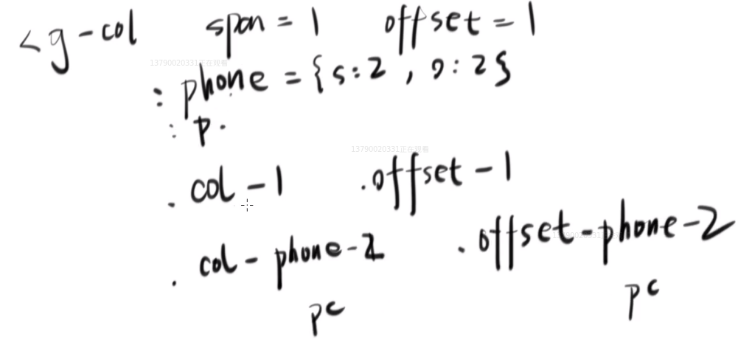 <g-col span=1 offset=1
:phone={s:2, o:2}
:p.
.col-1 .offset-1
.col-phone-2 .offset-phone-2
pc pc